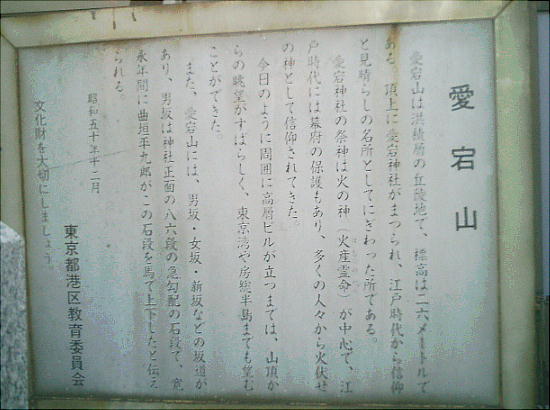 愛宕山
愛宕山は洪積層の丘陵地で、標高は二六メートルで
ある。頂上に愛宕神社がまつられ、江戸時代から信仰
と見晴らしの名所としてにぎわった所である。
愛宕神社の祭神は火の神(火産霊命)が中心で、江
戸時代には幕府の保護もあり、多くの人々から火伏せ
の神として信仰されてきた。
今日のように周囲に高層ビルが立つまでは、山頂か
らの眺望がすばらしく、東京湾や房総半島までも望む
ことができた。
また、愛宕山には、男坂・女坂・新坂などの坂道が
あり、男坂は神社正面の八六段の急勾配の石段で、寛
永年間に曲垣平九郎がこの石段を馬で上下したと伝え
られる。
昭和五十年十二月
文化財を大切にしましょう。
東京都港区教育委員会